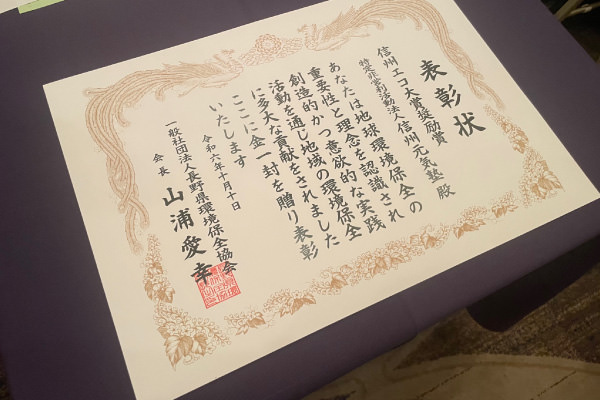 表彰状
信州エコ大賞奨励賞
特定非営利活動法人信州元気塾 殿
あなたは地球環境保全の
重要性と理念を認識され
創造的かつ意欲的な実践
活動を通じ地域の環境保全
に多大な貢献をされました
ここに金一封を贈り表彰
いたします
令和六年十月十日
一般社団法人長野県環境保全協会
会長 山浦愛幸